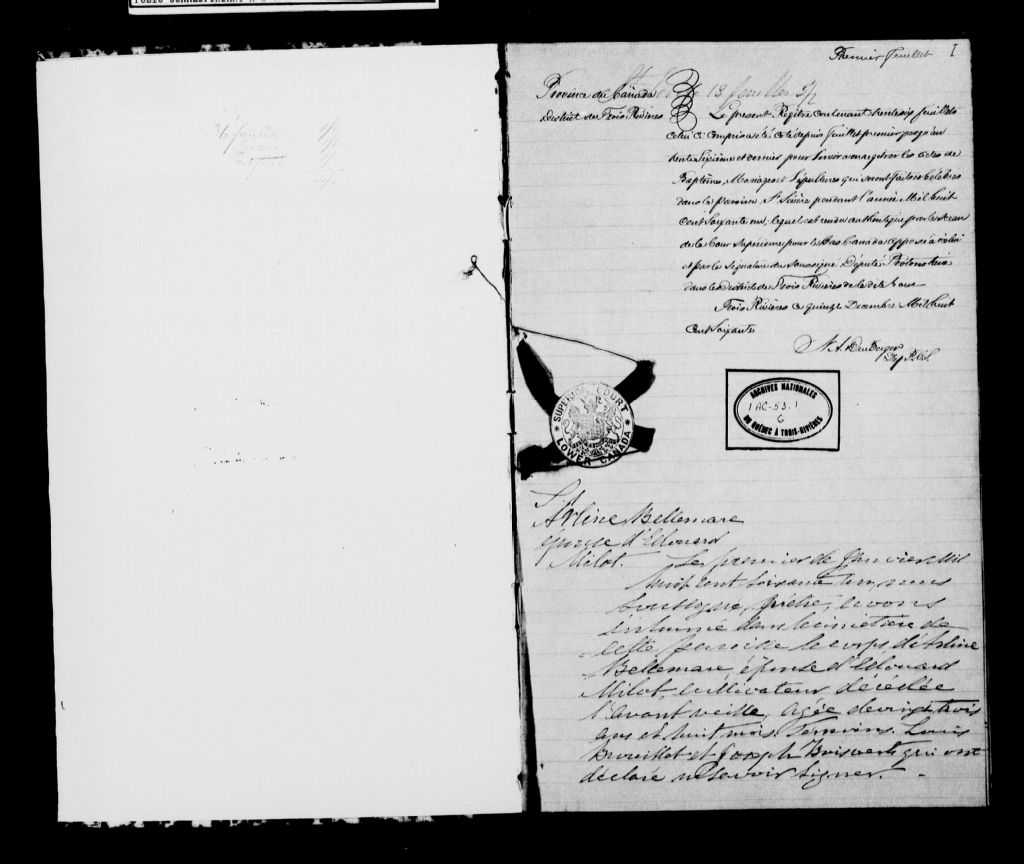 Premier feuillet
I
Province du Canada
District des Trois Rivières
13 feuilles 5/2
Le present Régitre contenant trente six feuillets
celui ci compris a été coté depuis feuillet premier jusqu'au
trente Sixième et dernier pour servir a enregitrer les actes de
Baptêmes, Mariages et Sépultures qui seront faits et célébrés
dans la Paroisse St Sévère pendant l'année Mil huit
Cent Soixante un; lequel est rendu authentique par le Sceau
de la Cour Supérieure pour le Bas Canada apposé à icelui
et par la Signature du Soussigné Député Protonotaire
dans le District des Trois Rivières de la dite Cour
Trois Rivières ce quinze Decembre Mil huit
Cent Soixante
36 feuilles
SUPERIOR COURT
LOWER CANADA
ARCHIVES NATIONALES
1 AC-53.1
6
DU QUÉBEC À TROIS-RIVIÈRES
S.
Arline Bellemare
épouse d'Edouard
Milot.
Le premier de Janvier Mil
huit cent soixante un, nous
soussigné, prêtre, avons
inhumé dans le cimetière de
cette paroisse le corps d'Arline
Bellemare, épouse d'Edouard
Milot, cultivateur décédée
l'avant veille, agée de vingt trois
ans et huit mois. Témoins. Louis
Brouillet et Joseph Boisvert qui ont
déclaré ne savoir signer.